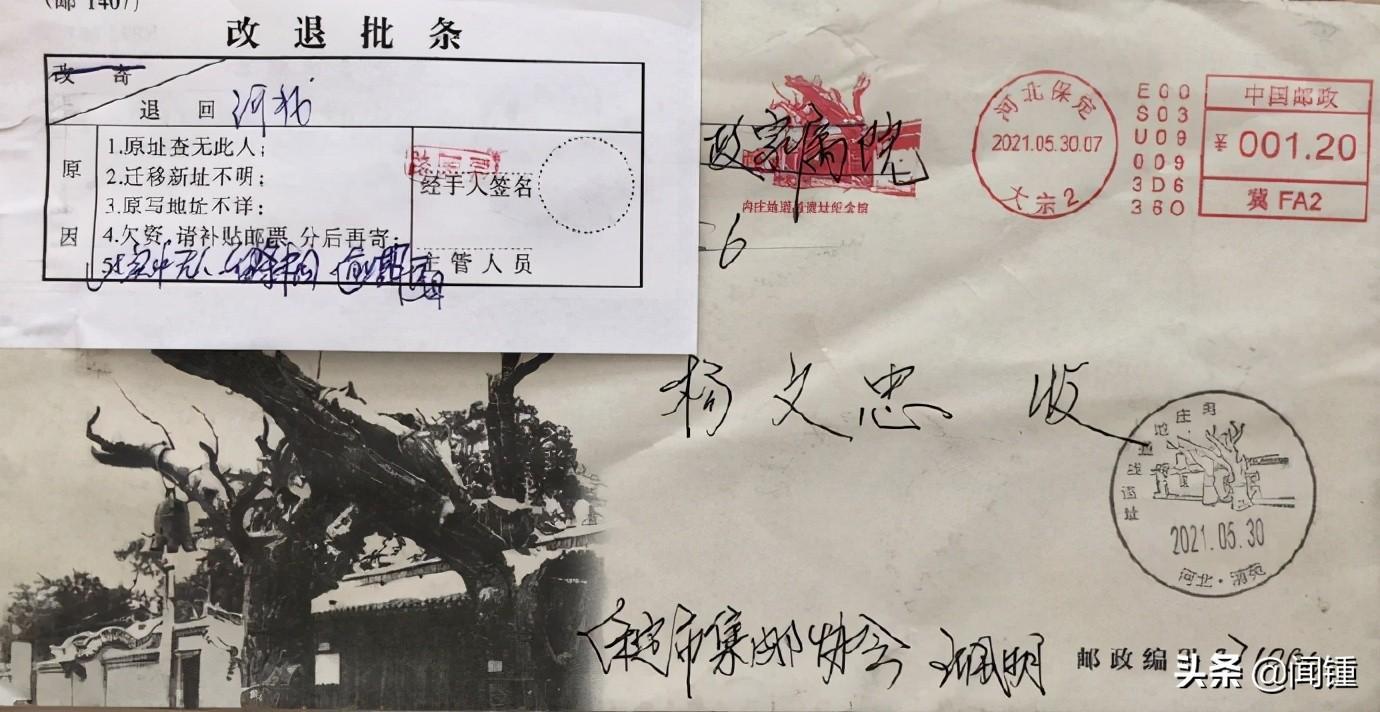 (邮1407)
改退批条
改寄
退回 河北
原因
1.原址查无此人;
2.迁移新址不明;
3.原写地址不详:
4.欠资,请补贴邮票 分后再寄;
5
经手人签名
主管人员
政家属院
6
冉庄地道战遗址纪念馆
河北保定
2021.05.30.07
大宗2
E00
S03
U09
009
3D6
360
中国邮政
¥001.20
冀 FA2
杨文忠 收
冉庄地道战遗址
2021.05.30
河北·清苑
保定市集邮协会
邮政编
头条 @闻锺